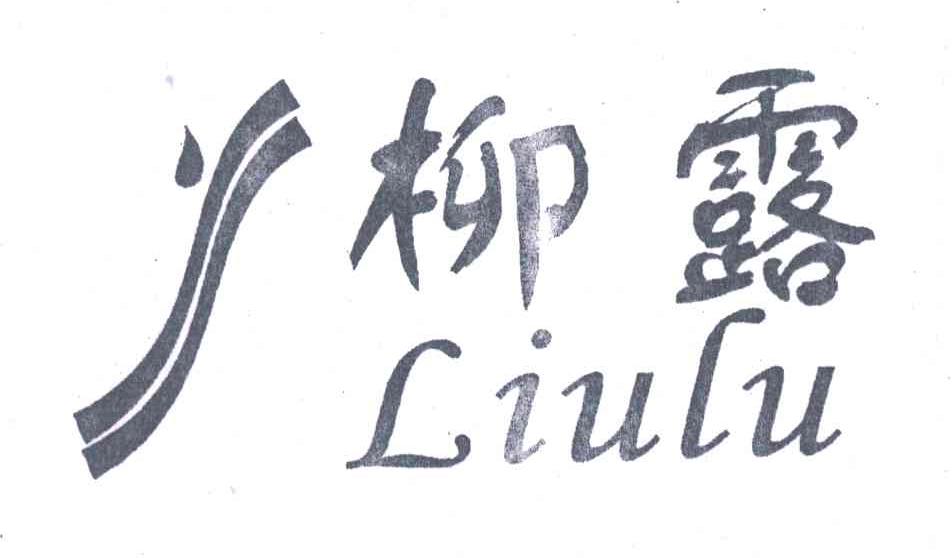 柳露
Liulu